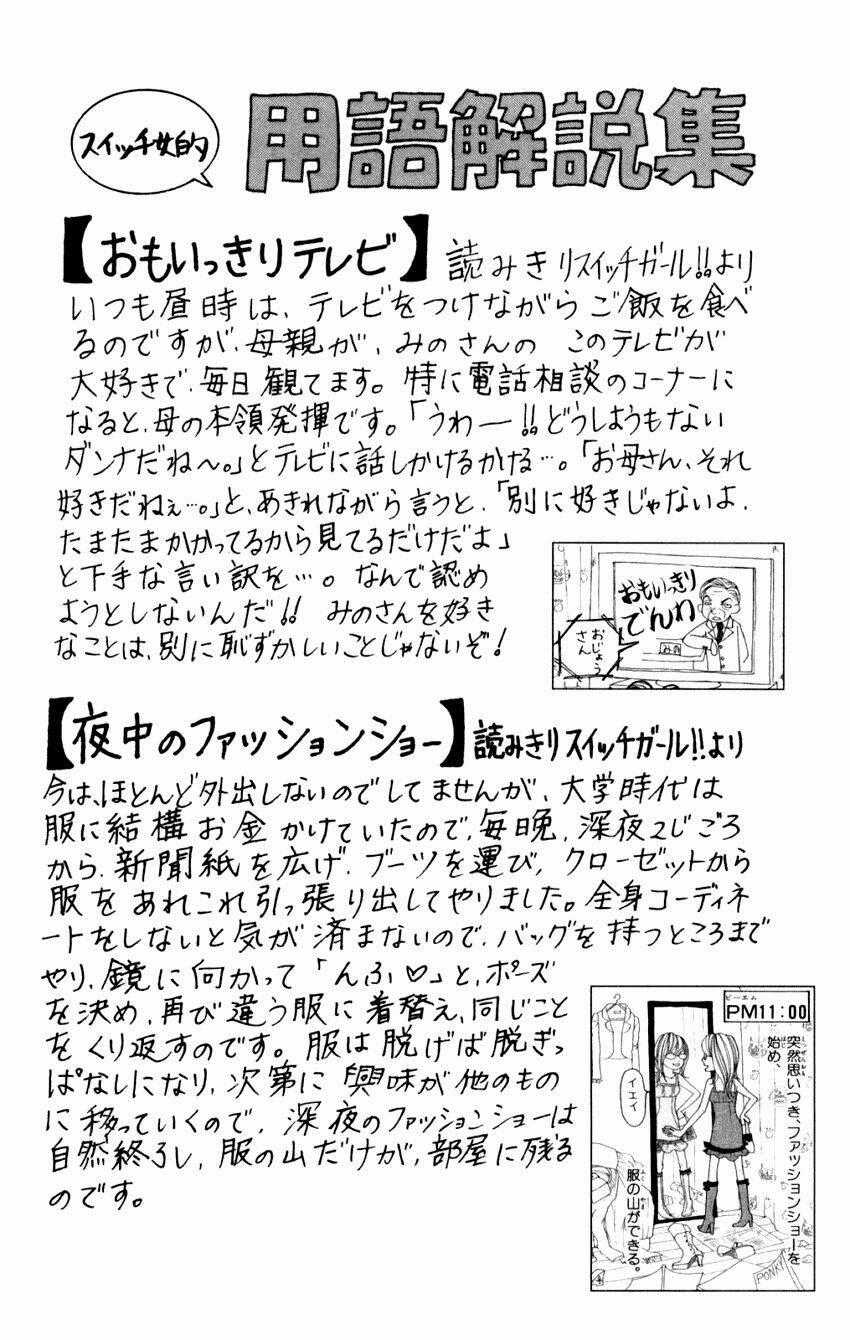 スイッチ女的
用語解説集
【おもいっきりテレビ】読みきりスイッチガール!!より
いつも昼時は、テレビをつけながらご飯を食べ
るのですが、母親が、みのさんの このテレビが
大好きで、毎日観てます。特に電話相談のコーナーに
なると、母の本領発揮です。「うわー!!どうしようもない
ダンナだね〜。」とテレビに話しかけるかける…。「お母さん、それ
好きだねぇ…。」と、あきれながら言うと、「別に好きじゃないよ、
たまたまかかってるから見てるだけだよ」
と下手な言い訳を…。なんで認め
ようとしないんだ!! みのさんを好き
なことは、別に恥ずかしいことじゃないぞ!
おもいっきり
でんわ
おじょう
さん
【夜中のファッションショー】読みきりスイッチガール!!より
今は、ほとんど外出しないのでしてませんが、大学時代は
服に結構お金かけていたので、毎晩、深夜2じごろ
から、新聞紙を広げ、ブーツを運び、クローゼットから
服をあれこれ引っ張り出してやりました。全身コーディネ
ートをしないと気が済まないので、バッグを持つところまで
やり、鏡に向かって「んふ♡」と、ポーズ
を決め、再び違う服に着替え、同じこと
をくり返すのです。服は脱げば脱ぎっ
ぱなしになり、次第に興味が他のもの
に移っていくので、深夜のファッションショーは
自然終了し、服の山だけが、部屋に残る
のです。
ピーエム
PM11:00
突然思いつき、ファッションショーを
始め、
イエイ
服の山ができる。
PONKY